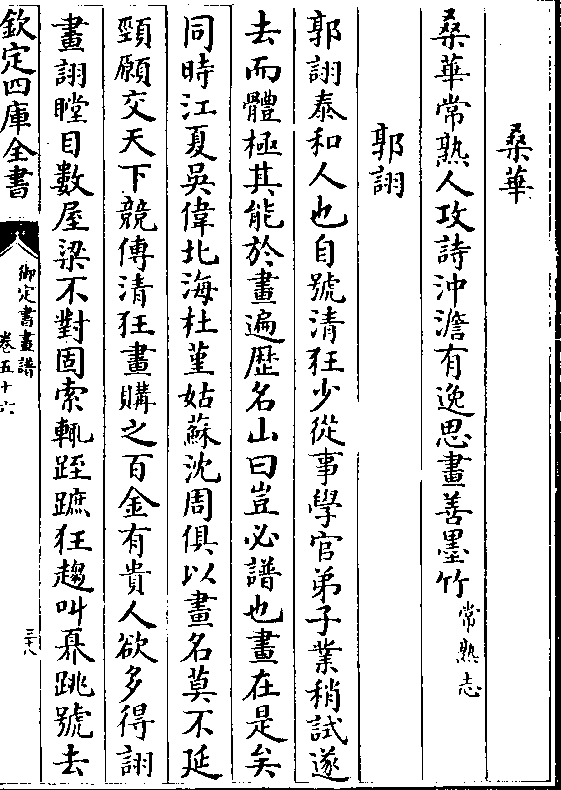 桑華
桑華常熟人攻詩沖澹有逸思畫善墨竹常熟志
郭詡
郭詡泰和人也自號清狂少從事學官弟子業稍試遂
去而體極其能於畫遍歴名山曰豈必譜也畫在是矣
同時江夏吳偉北海杜堇姑蘇沈周俱以畫名莫不延
頸願交天下競傳清狂畫購之百金有貴人欲多得詡
畫詡瞠目數屋梁不對固索輒跮蹠狂趨叫昇跳號去
欽定四庫全書
御定書畫譜
卷五十六
三十八